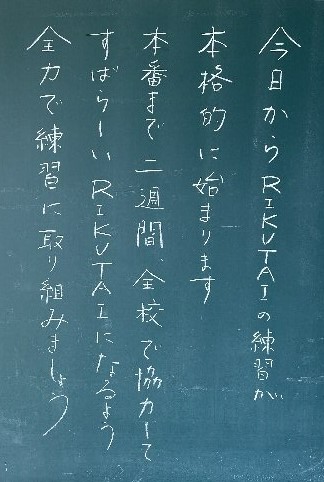 今日からRIKUTAIの練習が
本格的に始まります
本番まで二週間、全校で協力して
すばらしいRIKUTAIになるよう
全力で練習に取り組みましょう